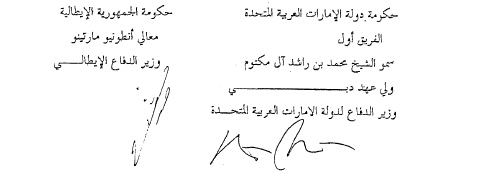 حكومة دولة الإمارات العربية المتحدة
الفريق أول
سمو الشيخ محمد بن راشد آل مكتوم
ولي عهد دبـــــــــــــي
وزير الدفاع لدولة الامارات العربية المتحـــدة
حكومة الجمهورية الإيطالية
معالي أنطونيو مارتينو
وزير الدفاع الإيطالـــــي